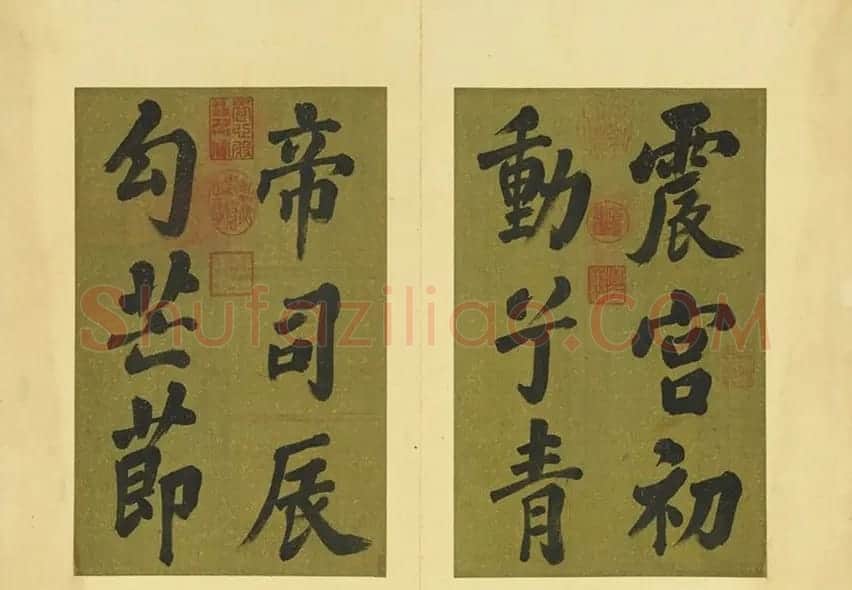 震宮初
動兮青
帝司辰
勾芒節
Shufaziliao.COM